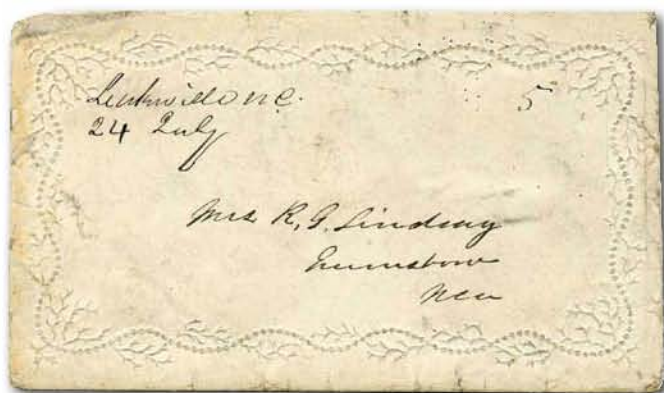 Leaksville N C. 5
24 July
Mrs R. G. Lindsay
Greensboro
N Ca